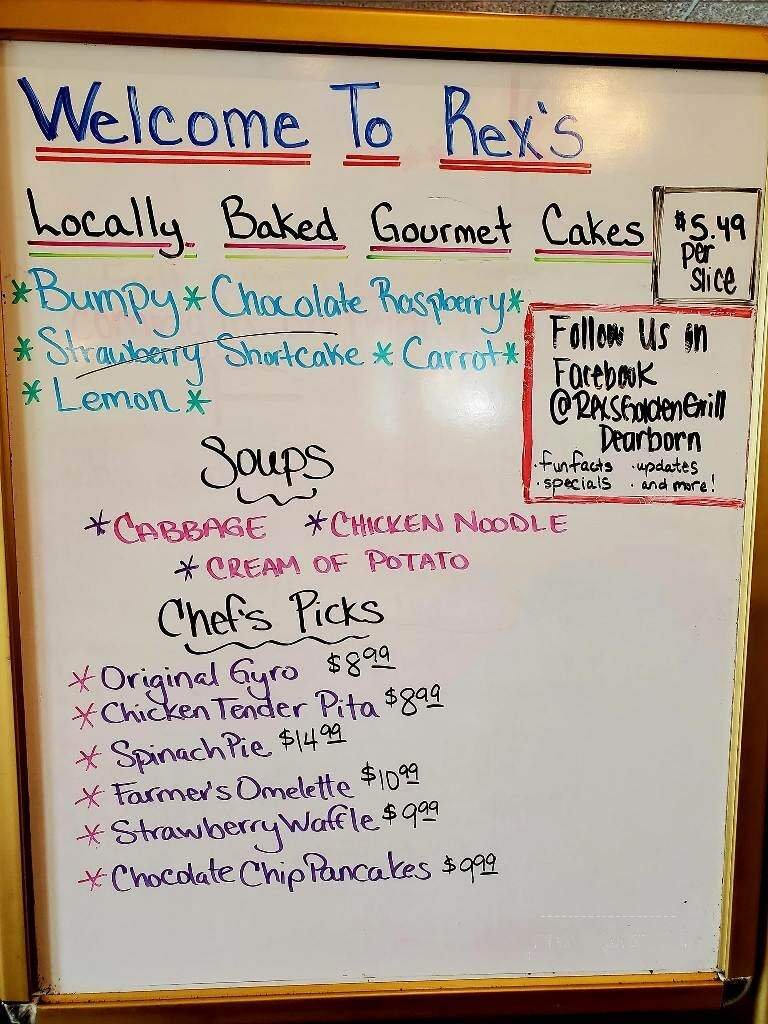 Welcome To Rex's
Locally Baked Gourmet Cakes
$5.49
per
slice
*Bumpy* Chocolate Raspberry*
* Strawberry Shortcake * Carrot*
* Lemon *
Follow Us in
Facebook
@RexsGoldenGrill
Dearborn
• fun facts • updates
• specials • and more!
Soups
*CABBAGE *CHICKEN NOODLE
*CREAM OF POTATO
Chef's Picks
*Original Gyro $8.99
*Chicken Tender Pita $8.99
* Spinach Pie $14.99
* Farmer's Omelette $10.99
* Strawberry Waffle $9.99
* Chocolate Chip Pancakes $9.99